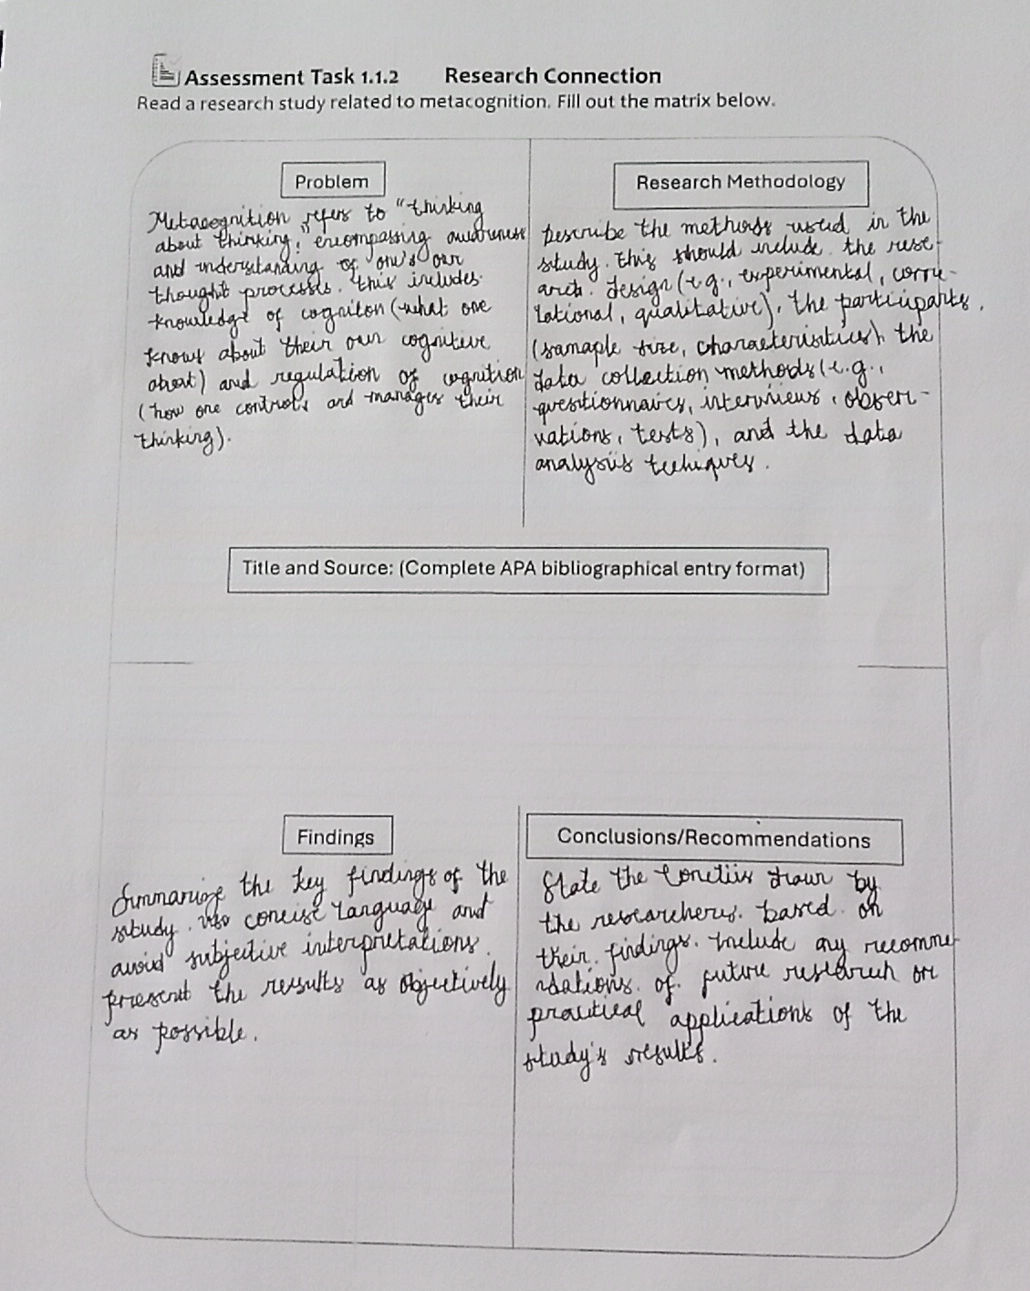 Assessment Task 1.1.2 Research Connection
Read a research study related to metacognition. Fill out the matrix below.
Problem
Metacognition refers to "thinking
about thinking," encompassing awareness
and understanding of one's own
thought processes. this includes
knowledge of cogniton (what one
knows about their own cognitive
about) and regulation of cognition
(how one controls and manages their
thinking).
Research Methodology
Describe the methods used in the
study. this should include the rese-
arch. design (e.g., experimental, corre-
lational, qualitative), the participants,
(samaple size, characteristics), the
data collection methods (e.g.,
questionnaires, interviews, obser-
vations, tests), and the data
analysis techiques.
Title and Source: (Complete APA bibliographical entry format)
Findings
Summarize the key findings of the
study. use concise language and
avoid subjective interpretations.
present the results as objectively
as possible.
Conclusions/Recommendations
State the drawn by
the researchers. based on
their findings. Include any recomme-
ndations. of future research or
practical applications of the
study's results.